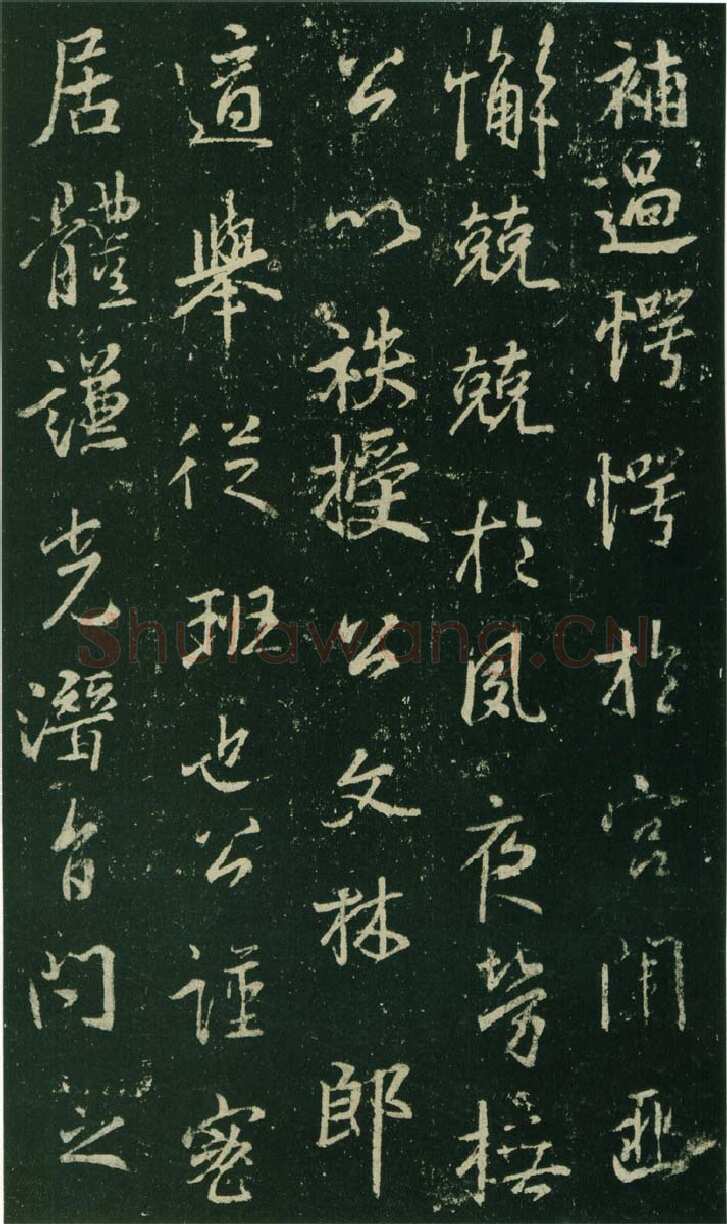 補過愕愕於宮闈匪
懈兢兢於夙夜勞撫
公以袟授公文林郎
道舉從班也公謹密
居體謙光潛旨問之
Shufawang.CN